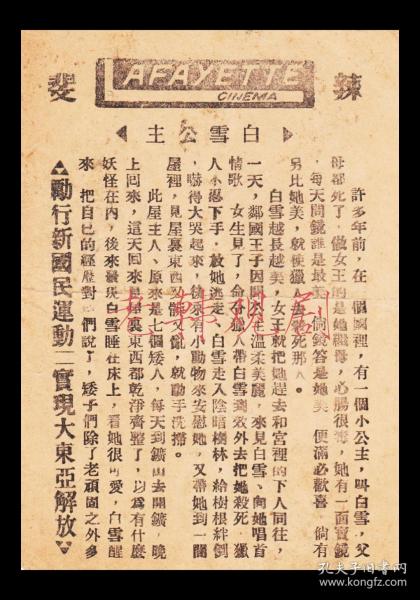 辣斐
LAFAYETTE
CINEMA
白雪公主
許多年前，在一個國裡，有一個小公主，叫白雪，父
母都死了，做女王的是她繼母，心腸很毒，她有一面寶鏡
，每天問鏡誰是最美，倘鏡答是她美，便滿心歡喜，倘有
另比她美，就使獵人去殺死那人。
白雪越長越美，女王就把她趕去和宮裡的下人同住，
一天，鄰國王子因聞公主溫柔美麗，來見白雪，向她唱首
情歌，女王見了，命令獵人帶白雪到效外去把她殺死，獵
人不忍下手，放她逃走，白雪走入陰暗樹林，給樹根絆倒
，嚇得大哭起來，後來有小動物來安慰她，又帶她到一間
屋裡，見屋裏東西又髒又亂，就動手洗掃。
此屋主人，原來是七個矮人，每天到鑛山去開鑛，晚
上回來，這天回來見屋裏東西都乾淨齊整了，以為有什麼
妖怪在內，後來發現白雪睡在床上，看她很可愛，白雪醒
來，把自已的經歷對他們說了，矮子們除了老頑固之外多
▲勵行新國民運動＝實現大東亞解放▼
孔夫子旧书网
book.kongfz.com